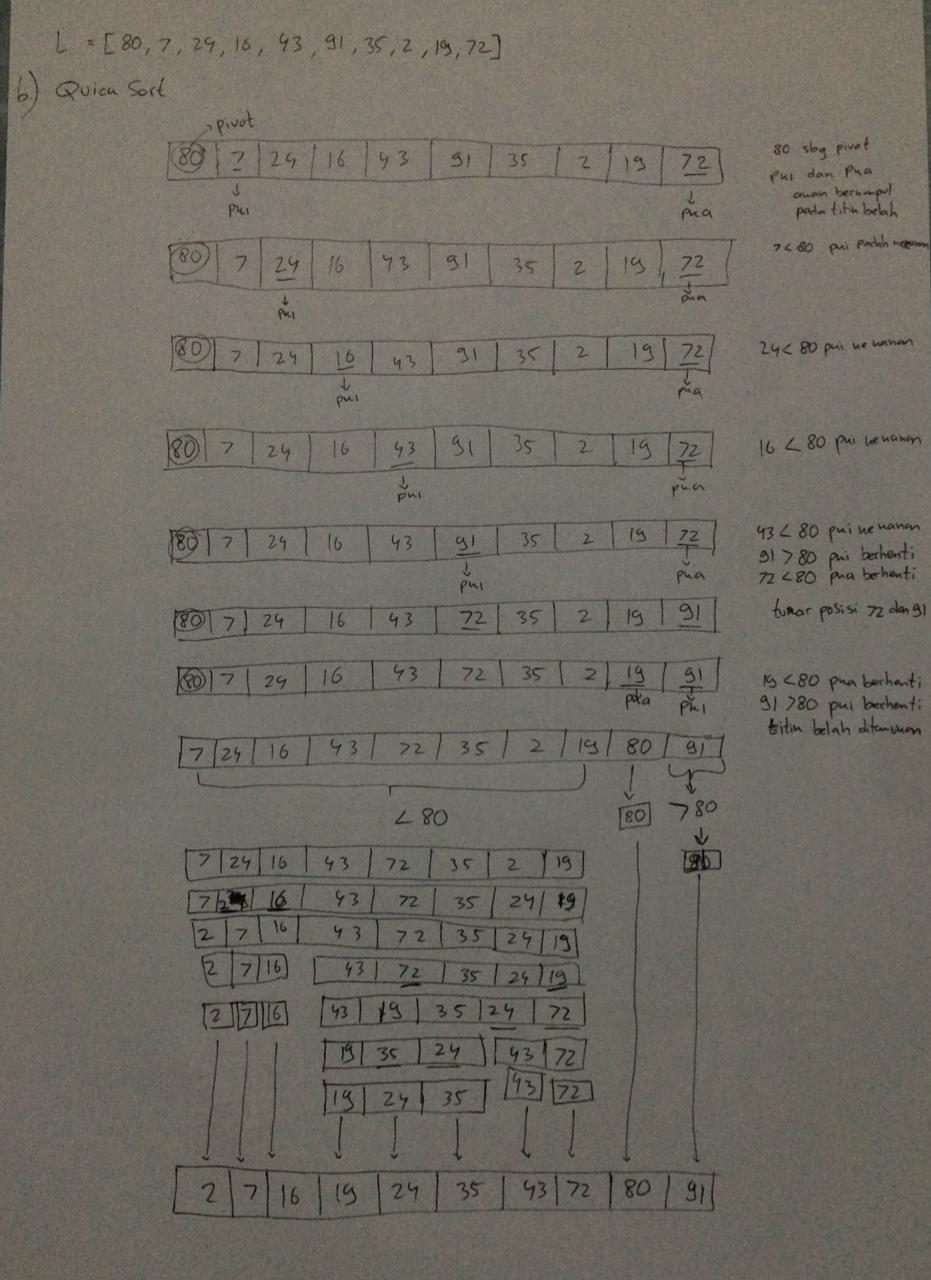 L = [80, 7, 24, 16, 43, 91, 35, 2, 19, 72]
b.) Quick Sort
pivot
80 7 24 16 43 91 35 2 19 72
pki pka
80 sbg pivot
pki dan pka
akan berkumpul
pada titik belah
80 7 24 16 43 91 35 2 19 72
pki pka
7 < 80 pki pindah
80 7 24 16 43 91 35 2 19 72
pki pka
24 < 80 pki kekanan
80 7 24 16 43 91 35 2 19 72
pki pka
16 < 80 pki kekanan
80 7 24 16 43 91 35 2 19 72
pki pka
43 < 80 pki kekanan
91 > 80 pki berhenti
72 < 80 pka berhenti
80 7 24 16 43 72 35 2 19 91
tukar posisi 72 dan 91
80 7 24 16 43 72 35 2 19 91
pka pki
19 < 80 pka berhenti
91 > 80 pki berhenti
titik belah ditemukan
7 24 16 43 72 35 2 19 80 91
< 80 80 > 80
7 24 16 43 72 35 2 19
7 2 16 43 72 35 24 19
2 7 16 43 72 35 24 19
2 7 16 43 72 35 24 19
2 7 16 43 19 35 24 72
19 35 24 43 72
19 24 35 43 72
2 7 16 19 24 35 43 72 80 91